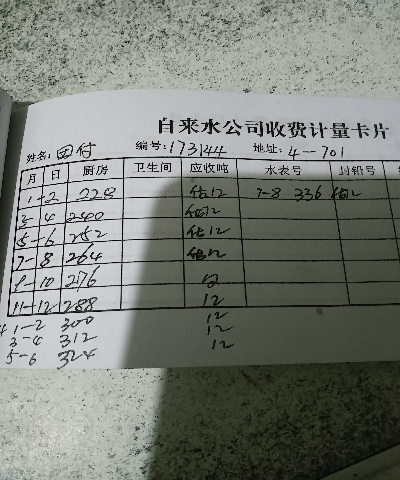 自来水公司收费计量卡片
姓名: 团付 编号: 173144 地址: 4-701
月 日 厨房 卫生间 应收吨 水表号 封铅号
1-2 228 估12 7-8 336 估12
3-4 240 估12
5-6 252 估12
7-8 264 估12
9-10 276 12
11-12 288 12
1-2 300 12
3-4 312 12
5-6 324 12